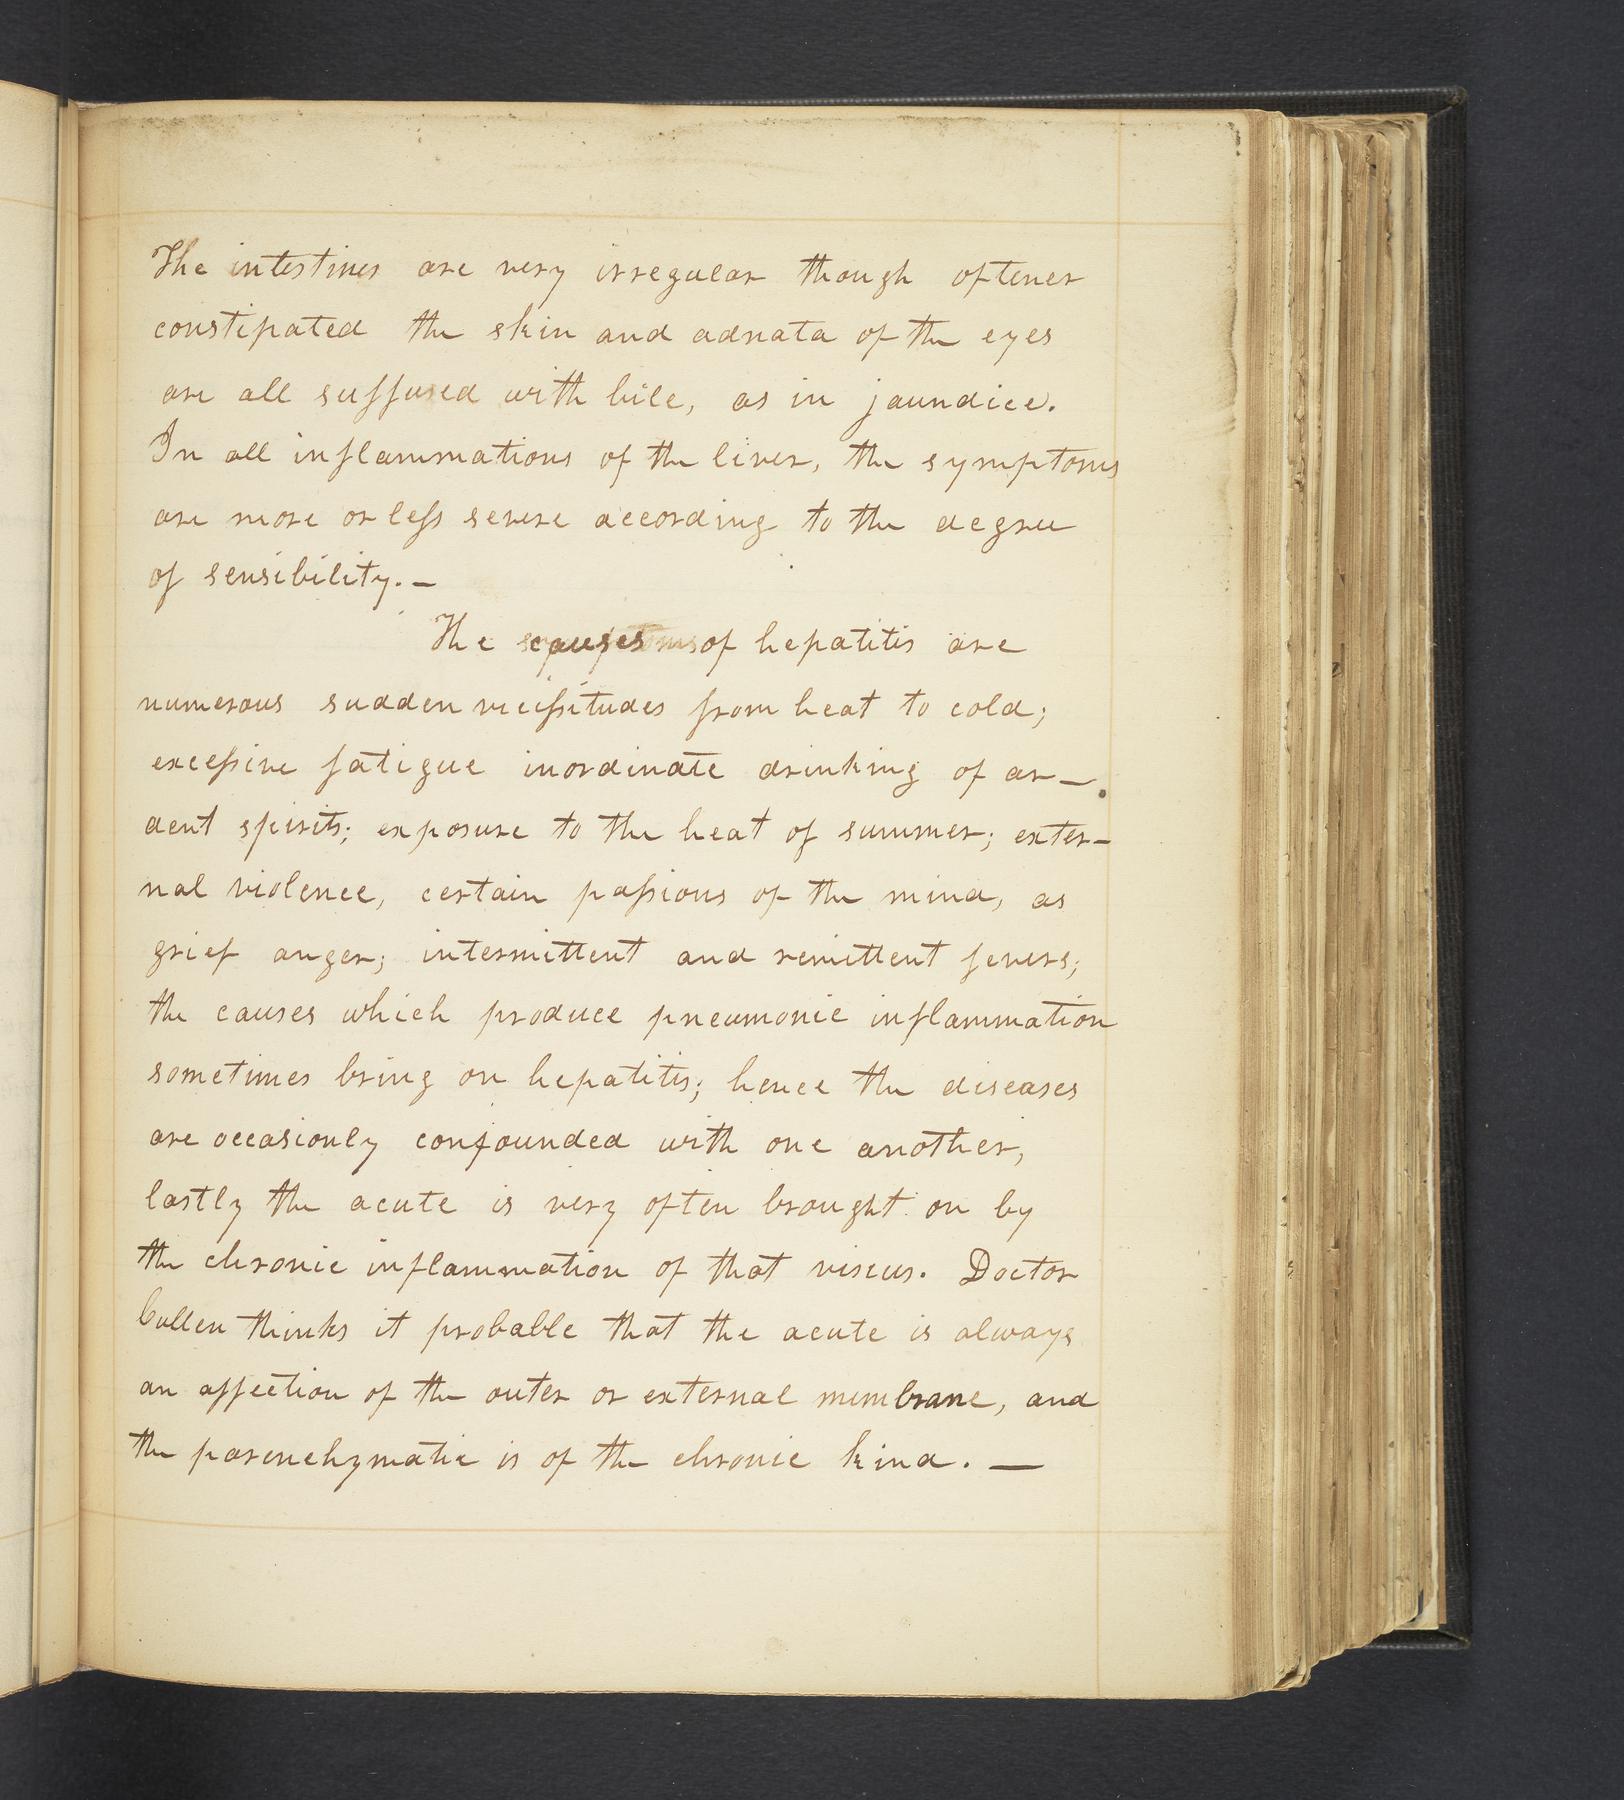 The intestines are very irregular though oftener
constipated the skin and adnata of the eyes
are all suffused with bile, as in jaundice.
In all inflammations of the liver, the symptoms
are more or less severe according to the degree
of sensibility. —
The causes of hepatitis are
numerous sudden vicissitudes from heat to cold;
excessive fatigue inordinate drinking of ar—
dent spirits; exposure to the heat of summer; exter—
nal violence, certain passions of the mind, as
grief anger; intermittent and remittent fevers;
the causes which produce pneumonic inflammation
sometimes bring on hepatitis; hence the diseases
are occasionly confounded with one another,
lastly the acute is very often brought on by
the chronic inflammation of that viscus. Doctor
Cullen thinks it probable that the acute is always
an affection of the outer or external membrane, and
the parenchymatic is of the chronic kind. —